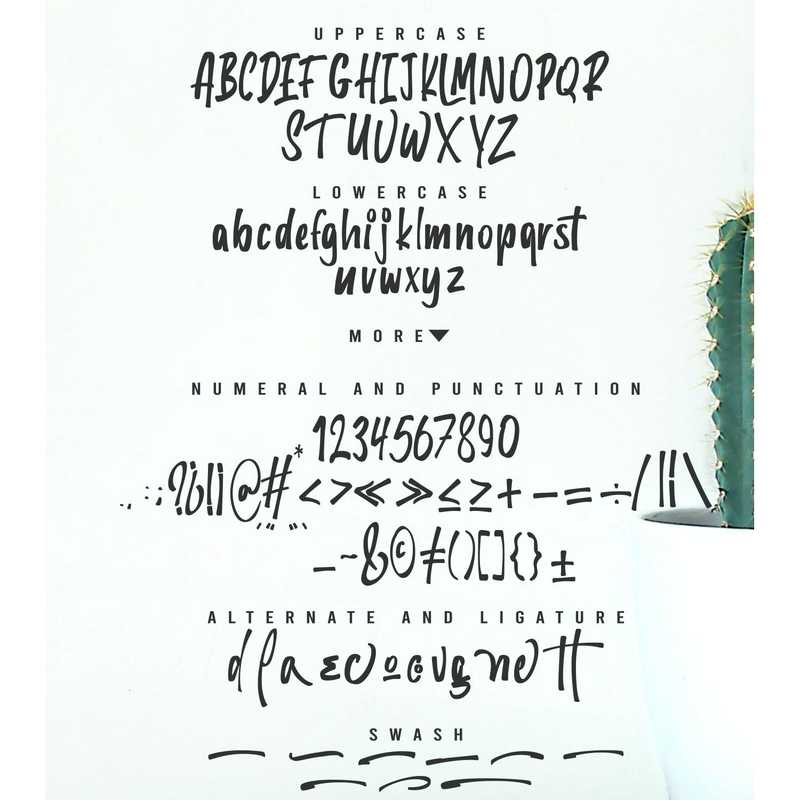 UPPERCASE
ABCDEFGHIJKLMNOPQR
STUVWXYZ
LOWERCASE
abcdefghijklmnopqrst
uvwxyz
MORE▼
NUMERAL AND PUNCTUATION
1234567890
.,:;?¿!¡@#*<>≪≫≤≥+−=÷/|¦\
_~&©≠()[]{}±
ALTERNATE AND LIGATURE
SWASH